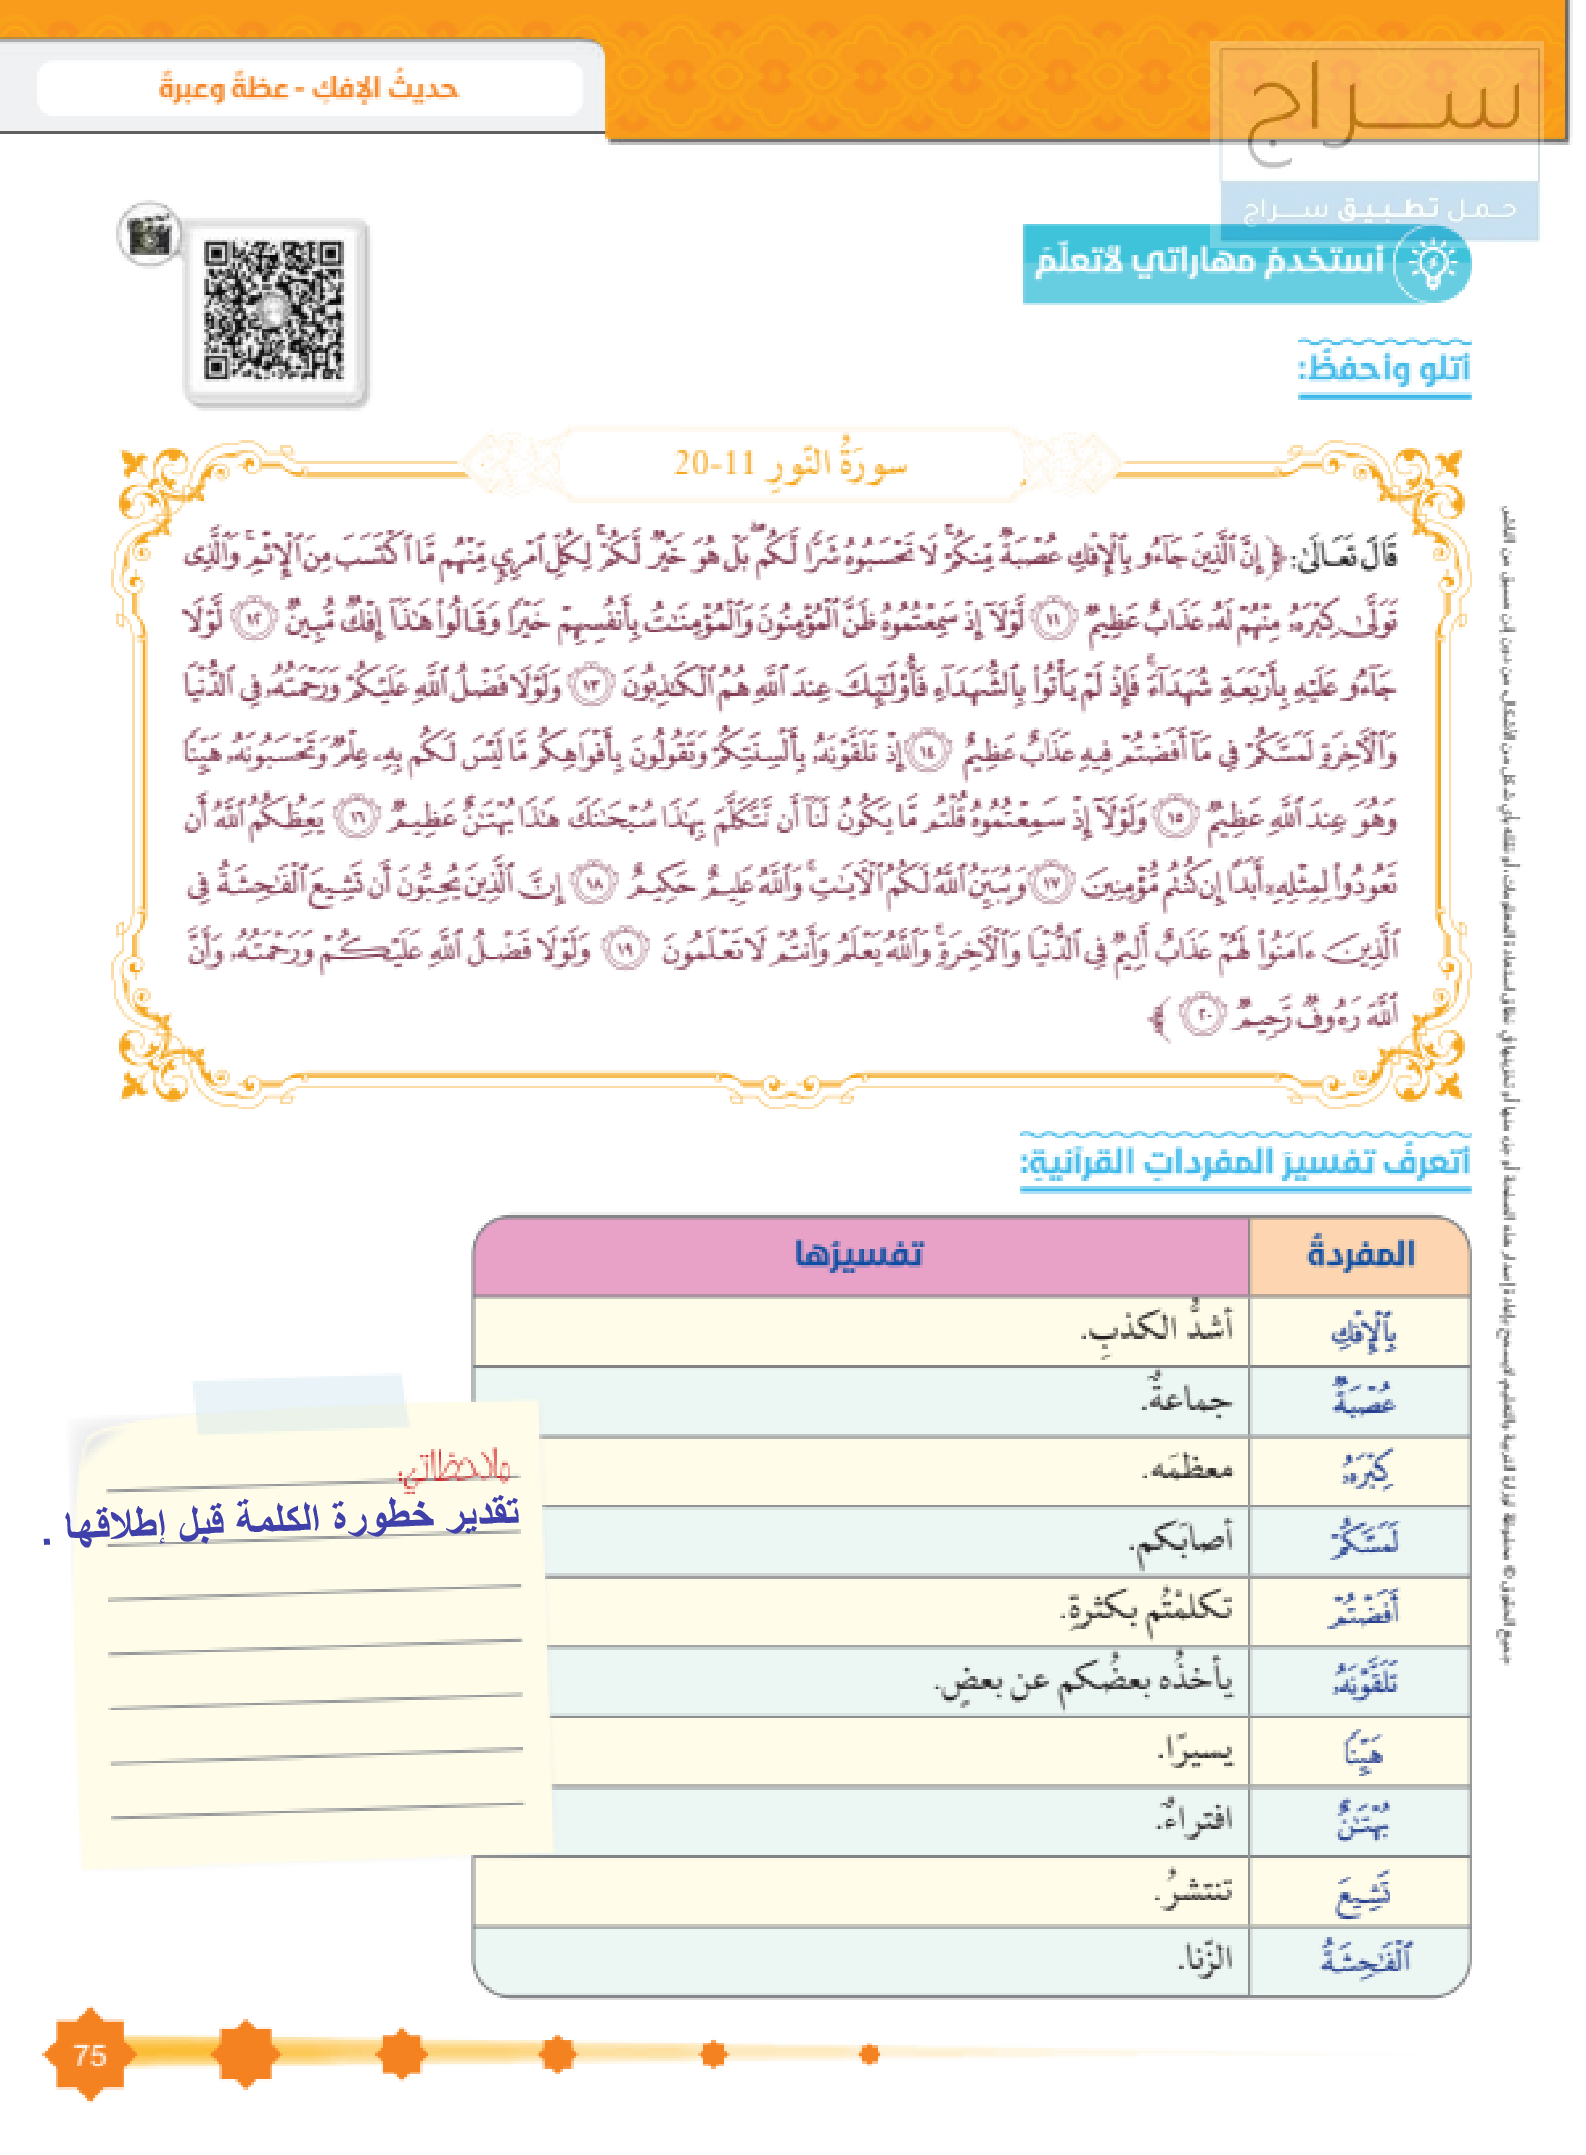 حديثُ الإفكِ - عظةٌ وعبرةٌ
سراج
حمل تطبيق سراج
أستخدمُ مهاراتي لأتعلّمَ
أتلو وأحفظُ:
سورَةُ النّورِ 11-20
قَالَ تَعَالَىٰ: ﴿ إِنَّ ٱلَّذِينَ جَآءُو بِٱلْإِفْكِ عُصْبَةٌ مِّنكُمْ لَا تَحْسَبُوهُ شَرًّا لَّكُم بَلْ هُوَ خَيْرٌ لَّكُمْ لِكُلِّ ٱمْرِئٍ مِّنْهُم مَّا ٱكْتَسَبَ مِنَ ٱلْإِثْمِ وَٱلَّذِى
تَوَلَّىٰ كِبْرَهُۥ مِنْهُمْ لَهُۥ عَذَابٌ عَظِيمٌ ١١ لَّوْلَآ إِذْ سَمِعْتُمُوهُ ظَنَّ ٱلْمُؤْمِنُونَ وَٱلْمُؤْمِنَٰتُ بِأَنفُسِهِمْ خَيْرًا وَقَالُوا۟ هَٰذَآ إِفْكٌ مُّبِينٌ ١٢ لَّوْلَا
جَآءُو عَلَيْهِ بِأَرْبَعَةِ شُهَدَآءَ فَإِذْ لَمْ يَأْتُوا۟ بِٱلشُّهَدَآءِ فَأُو۟لَٰٓئِكَ عِندَ ٱللَّهِ هُمُ ٱلْكَٰذِبُونَ ١٣ وَلَوْلَا فَضْلُ ٱللَّهِ عَلَيْكُمْ وَرَحْمَتُهُۥ فِى ٱلدُّنْيَا
وَٱلْآخِرَةِ لَمَسَّكُمْ فِى مَآ أَفَضْتُمْ فِيهِ عَذَابٌ عَظِيمٌ ١٤ إِذْ تَلَقَّوْنَهُۥ بِأَلْسِنَتِكُمْ وَتَقُولُونَ بِأَفْوَاهِكُم مَّا لَيْسَ لَكُم بِهِۦ عِلْمٌ وَتَحْسَبُونَهُۥ هَيِّنًا
وَهُوَ عِندَ ٱللَّهِ عَظِيمٌ ١٥ وَلَوْلَآ إِذْ سَمِعْتُمُوهُ قُلْتُم مَّا يَكُونُ لَنَآ أَن نَّتَكَلَّمَ بِهَٰذَا سُبْحَٰنَكَ هَٰذَا بُهْتَٰنٌ عَظِيمٌ ١٦ يَعِظُكُمُ ٱللَّهُ أَن
تَعُودُوا۟ لِمِثْلِهِۦٓ أَبَدًا إِن كُنتُم مُّؤْمِنِينَ ١٧ وَيُبَيِّنُ ٱللَّهُ لَكُمُ ٱلْآيَٰتِ وَٱللَّهُ عَلِيمٌ حَكِيمٌ ١٨ إِنَّ ٱلَّذِينَ يُحِبُّونَ أَن تَشِيعَ ٱلْفَٰحِشَةُ فِى
ٱلَّذِينَ ءَامَنُوا۟ لَهُمْ عَذَابٌ أَلِيمٌ فِى ٱلدُّنْيَا وَٱلْآخِرَةِ وَٱللَّهُ يَعْلَمُ وَأَنتُمْ لَا تَعْلَمُونَ ١٩ وَلَوْلَا فَضْلُ ٱللَّهِ عَلَيْكُمْ وَرَحْمَتُهُۥ وَأَنَّ
ٱللَّهَ رَءُوفٌ رَّحِيمٌ ٢٠ ﴾
أتعرفُ تفسيرَ المفرداتِ القرآنيةِ:
المفردةُ تفسيرُها
بِٱلْإِفْكِ أشدُّ الكذبِ.
عُصْبَةٌ جماعةٌ.
كِبْرَهُۥ معظمَه.
لَمَسَّكُمْ أصابَكم.
أَفَضْتُمْ تكلمْتُم بكثرةٍ.
تَلَقَّوْنَهُۥ يأخذُه بعضُكم عن بعضٍ.
هَيِّنًا يسيرًا.
بُهْتَٰنٌ افتراءٌ.
تَشِيعَ تنتشرُ.
ٱلْفَٰحِشَةُ الزّنا.
ملاحظاتي:
تقدير خطورة الكلمة قبل إطلاقها .
75